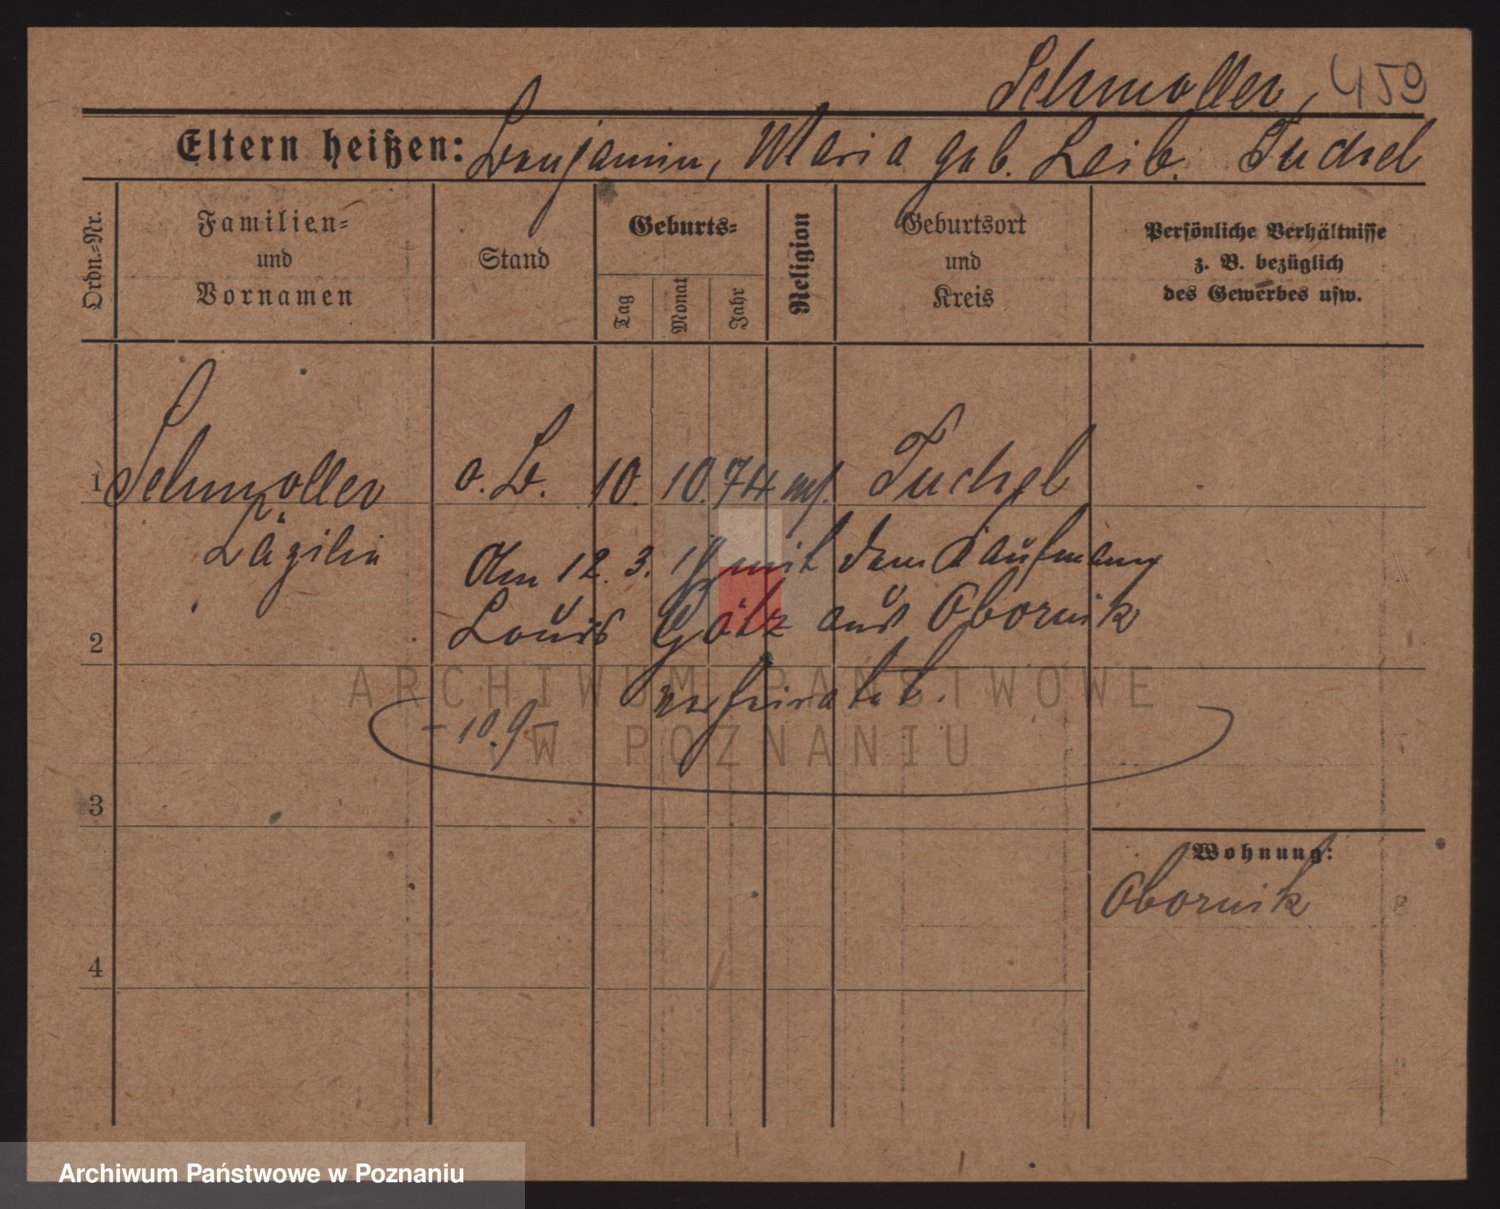 Schmoller, 459
Eltern heißen: Benjamin, Maria geb. Leib. Tuchel
Ordn.-Nr.
Familien- und Vornamen
Stand
Geburts-
Tag
Monat
Jahr
Religion
Geburtsort und Kreis
Persönliche Verhältnisse z. B. bezüglich des Gewerbes usw.
1 Schmoller o. B. 10. 10. 74 mos. Tuchel
Cäzilie
Am 12. 3. mit dem Kaufmann
2 Louis Götz aus Obornik
verheiratet.
- 10.9 -
3
Wohnung:
Obornik
4
ARCHIWUM PAŃSTWOWE
W POZNANIU
Archiwum Państwowe w Poznaniu